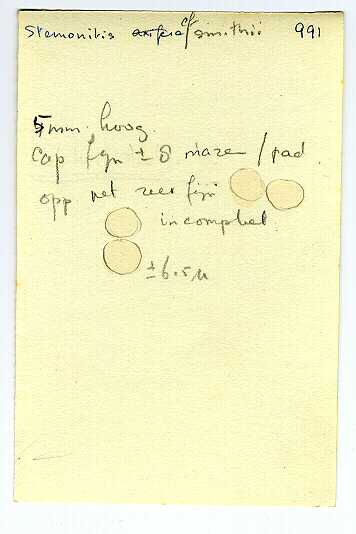 Stemonitis cf smithii 991
5 mm hoog
cap fijn ± 8 mazen / rad.
opp net zeer fijn
incompleet
± 6.5 µ